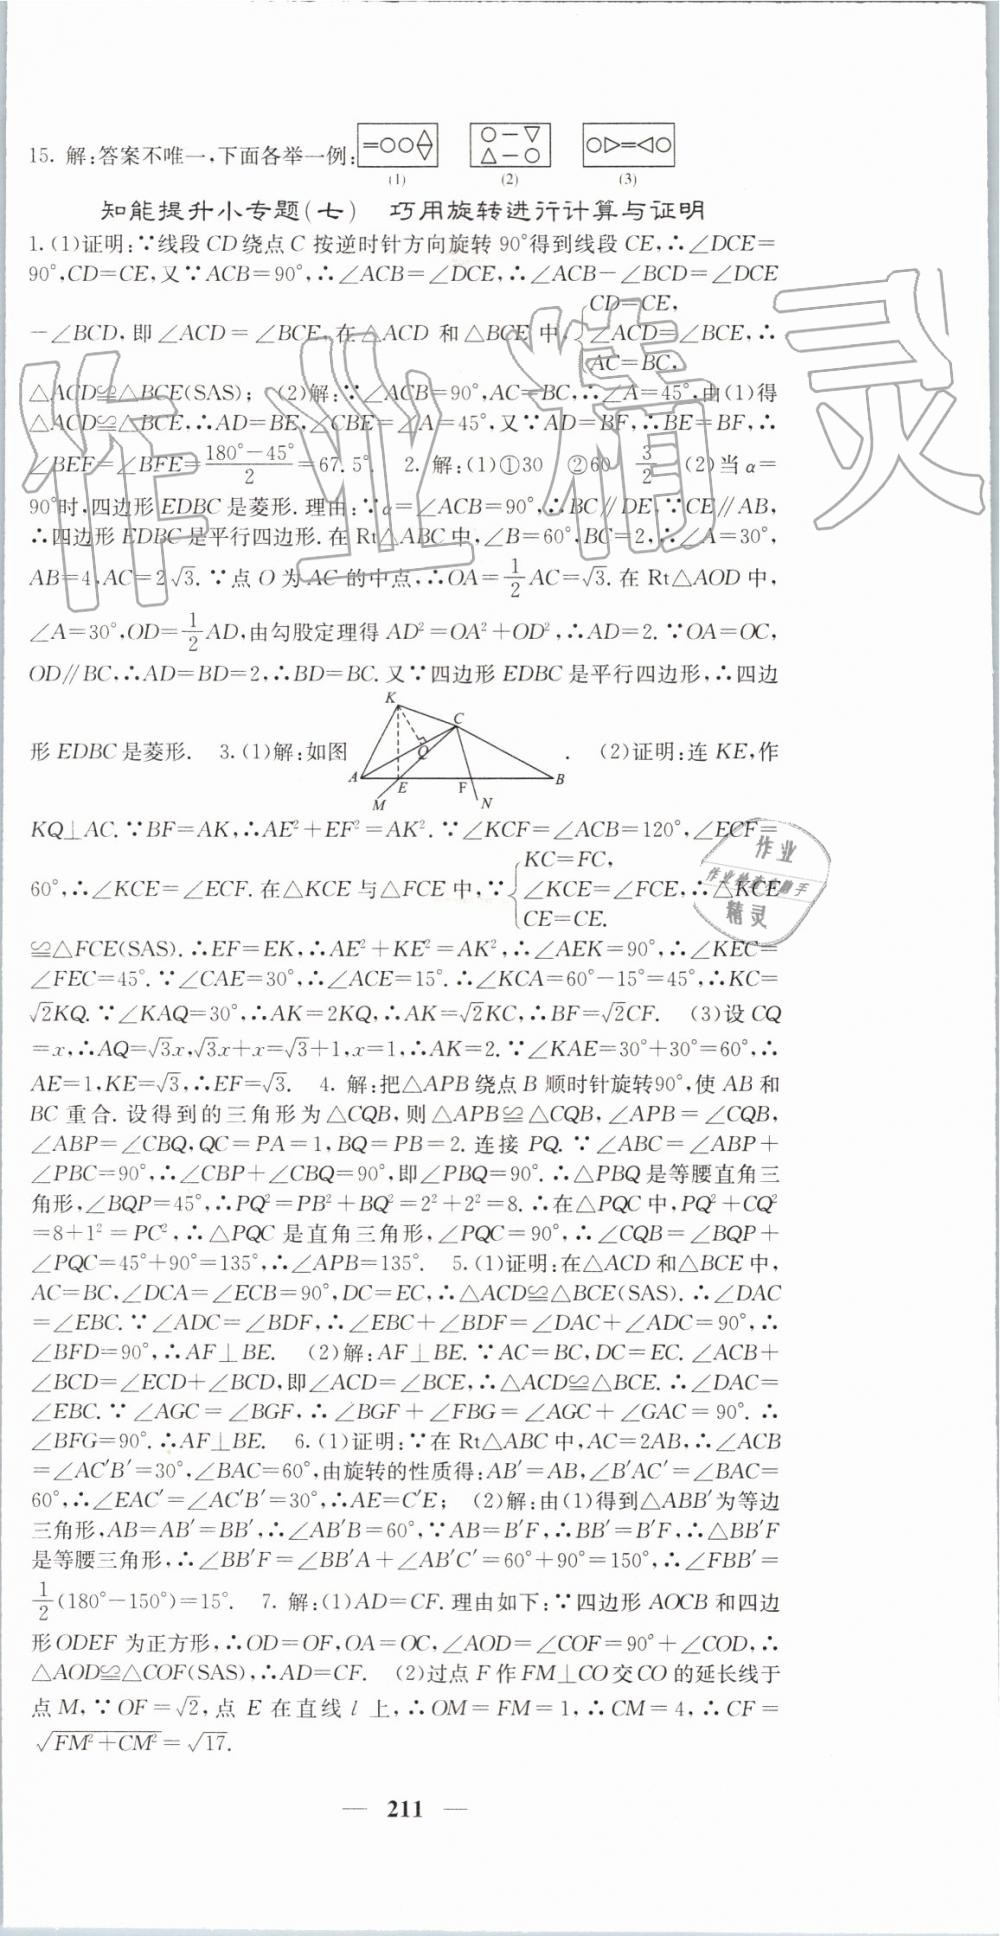 15. 解:答案不唯一,下面各举一例:
(1) (2) (3)
知能提升小专题(七) 巧用旋转进行计算与证明
1.(1)证明:∵线段CD绕点C按逆时针方向旋转90°得到线段CE,∴∠DCE=
90°,CD=CE,又∵ACB=90°,∴∠ACB=∠DCE,∴∠ACB-∠BCD=∠DCE
-∠BCD,即∠ACD=∠BCE,在△ACD和△BCE中,{CD=CE, ∠ACD=∠BCE, AC=BC, ∴
△ACD≌△BCE(SAS); (2)解:∵∠ACB=90°,AC=BC,∴∠A=45°,由(1)得
△ACD≌△BCE,∴AD=BE,∠CBE=∠A=45°,又∵AD=BF,∴BE=BF,∴
∠BEF=∠BFE=(180°-45°)/2=67.5°. 2. 解:(1)①30 ②60 3/2 (2)当α=
90°时,四边形EDBC是菱形.理由:∵α=∠ACB=90°,∴BC∥DE,∵CE∥AB,
∴四边形EDBC是平行四边形.在Rt△ABC中,∠B=60°,BC=2,∴∠A=30°,
AB=4,AC=2√3.∵点O为AC的中点,∴OA=1/2AC=√3.在Rt△AOD中,
∠A=30°,OD=1/2AD,由勾股定理得AD²=OA²+OD²,∴AD=2.∵OA=OC,
OD∥BC,∴AD=BD=2,∴BD=BC.又∵四边形EDBC是平行四边形,∴四边
形EDBC是菱形. 3.(1)解:如图 K C Q A E F B M N . (2)证明:连KE,作
KQ⊥AC.∵BF=AK,∴AE²+EF²=AK².∵∠KCF=∠ACB=120°,∠ECF=
60°,∴∠KCE=∠ECF.在△KCE与△FCE中,∵{KC=FC, ∠KCE=∠FCE, CE=CE. ∴△KCE
≌△FCE(SAS).∴EF=EK,∴AE²+KE²=AK²,∴∠AEK=90°,∴∠KEC=
∠FEC=45°.∵∠CAE=30°,∴∠ACE=15°.∴∠KCA=60°-15°=45°,∴KC=
√2KQ.∵∠KAQ=30°,∴AK=2KQ,∴AK=√2KC,∴BF=√2CF. (3)设CQ
=x,∴AQ=√3x,√3x+x=√3+1,x=1,∴AK=2.∵∠KAE=30°+30°=60°,∴
AE=1,KE=√3,∴EF=√3. 4. 解:把△APB绕点B顺时针旋转90°,使AB和
BC重合.设得到的三角形为△CQB,则△APB≌△CQB,∠APB=∠CQB,
∠ABP=∠CBQ,QC=PA=1,BQ=PB=2.连接PQ.∵∠ABC=∠ABP+
∠PBC=90°,∴∠CBP+∠CBQ=90°,即∠PBQ=90°.∴△PBQ是等腰直角三
角形,∠BQP=45°,∴PQ²=PB²+BQ²=2²+2²=8.∴在△PQC中,PQ²+CQ²
=8+1²=PC²,∴△PQC是直角三角形,∠PQC=90°,∴∠CQB=∠BQP+
∠PQC=45°+90°=135°,∴∠APB=135°. 5.(1)证明:在△ACD和△BCE中,
AC=BC,∠DCA=∠ECB=90°,DC=EC,∴△ACD≌△BCE(SAS).∴∠DAC
=∠EBC.∵∠ADC=∠BDF,∴∠EBC+∠BDF=∠DAC+∠ADC=90°,∴
∠BFD=90°,∴AF⊥BE. (2)解:AF⊥BE.∵AC=BC,DC=EC.∠ACB+
∠BCD=∠ECD+∠BCD,即∠ACD=∠BCE,∴△ACD≌△BCE.∴∠DAC=
∠EBC.∵∠AGC=∠BGF,∴∠BGF+∠FBG=∠AGC+∠GAC=90°.∴
∠BFG=90°.∴AF⊥BE. 6.(1)证明:∵在Rt△ABC中,AC=2AB,∴∠ACB
=∠AC′B′=30°,∠BAC=60°,由旋转的性质得:AB′=AB,∠B′AC′=∠BAC=
60°,∴∠EAC′=∠AC′B′=30°,∴AE=C′E; (2)解:由(1)得到△ABB′为等边
三角形,AB=AB′=BB′,∴∠AB′B=60°,∵AB=B′F,∴BB′=B′F,∴△BB′F
是等腰三角形,∴∠BB′F=∠BB′A+∠AB′C′=60°+90°=150°,∴∠FBB′=
1/2(180°-150°)=15°. 7. 解:(1)AD=CF.理由如下:∵四边形AOCB和四边
形ODEF为正方形,∴OD=OF,OA=OC,∠AOD=∠COF=90°+∠COD,∴
△AOD≌△COF(SAS),∴AD=CF. (2)过点F作FM⊥CO交CO的延长线于
点M,∵OF=√2,点E在直线l上,∴OM=FM=1,∴CM=4,∴CF=
√(FM²+CM²)=√17.
— 211 —
作业精灵
作业
作业检查小助手
精灵